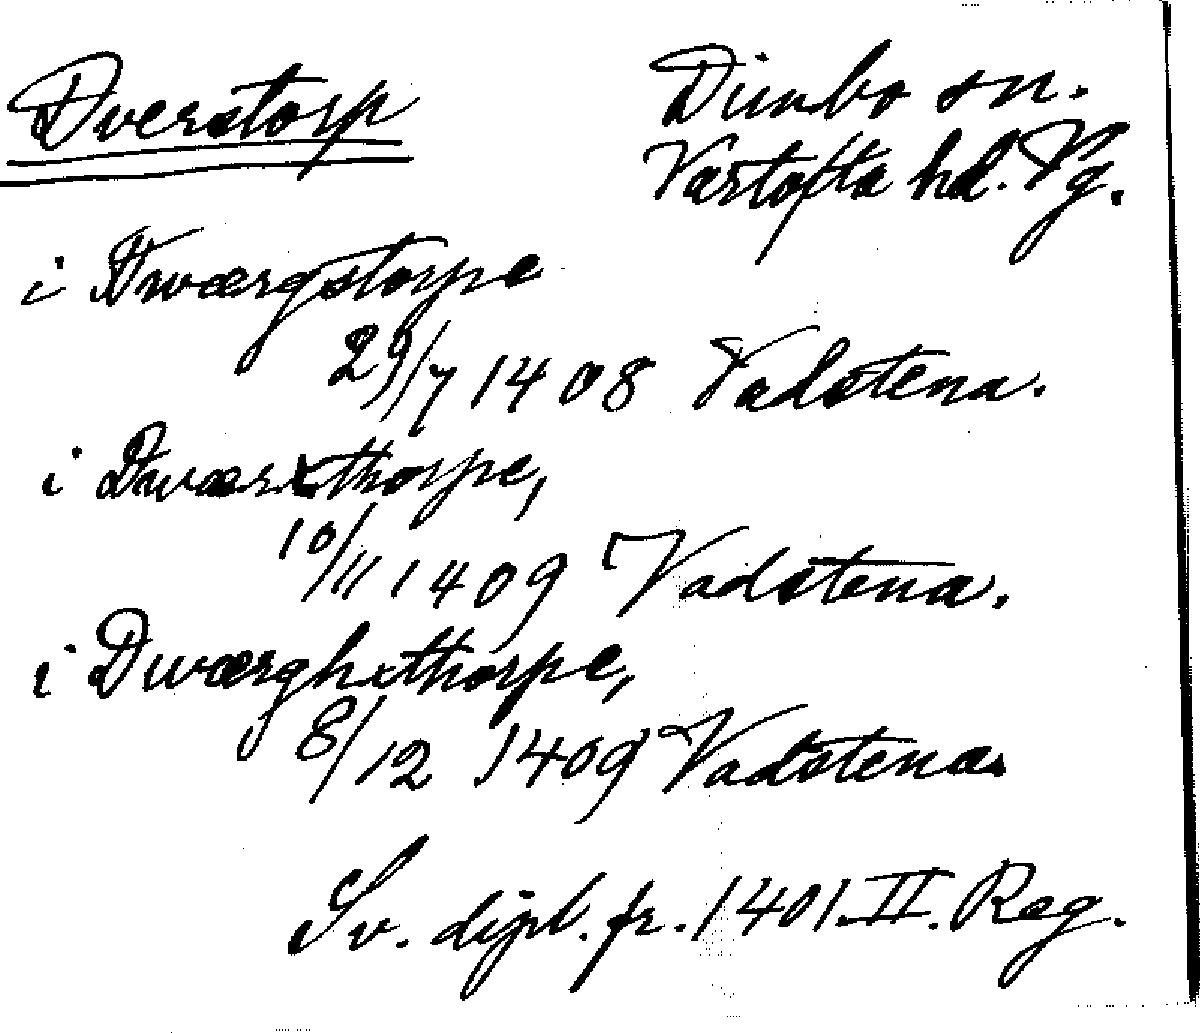 Dverstorp
Dimbo sn.
Vartofta hd. Vg.
i Dwærgstorpe
29/7 1408 Vadstena.
i Dwærxthorpe,
10/11 1409 Vadstena.
i Dwærghxthorpe,
8/12 1409 Vadstena.
Sv. dipl. fr. 1401 II. Reg.